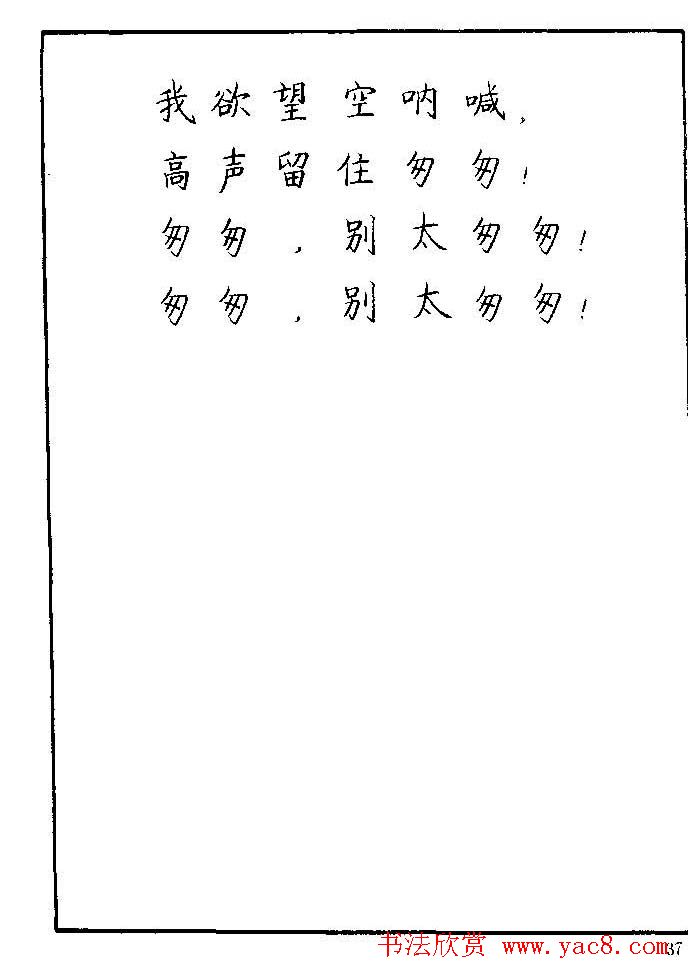 我欲望空呐喊,
高声留住匆匆!
匆匆,别太匆匆!
匆匆,别太匆匆!
书法欣赏 www.yac8.com
37